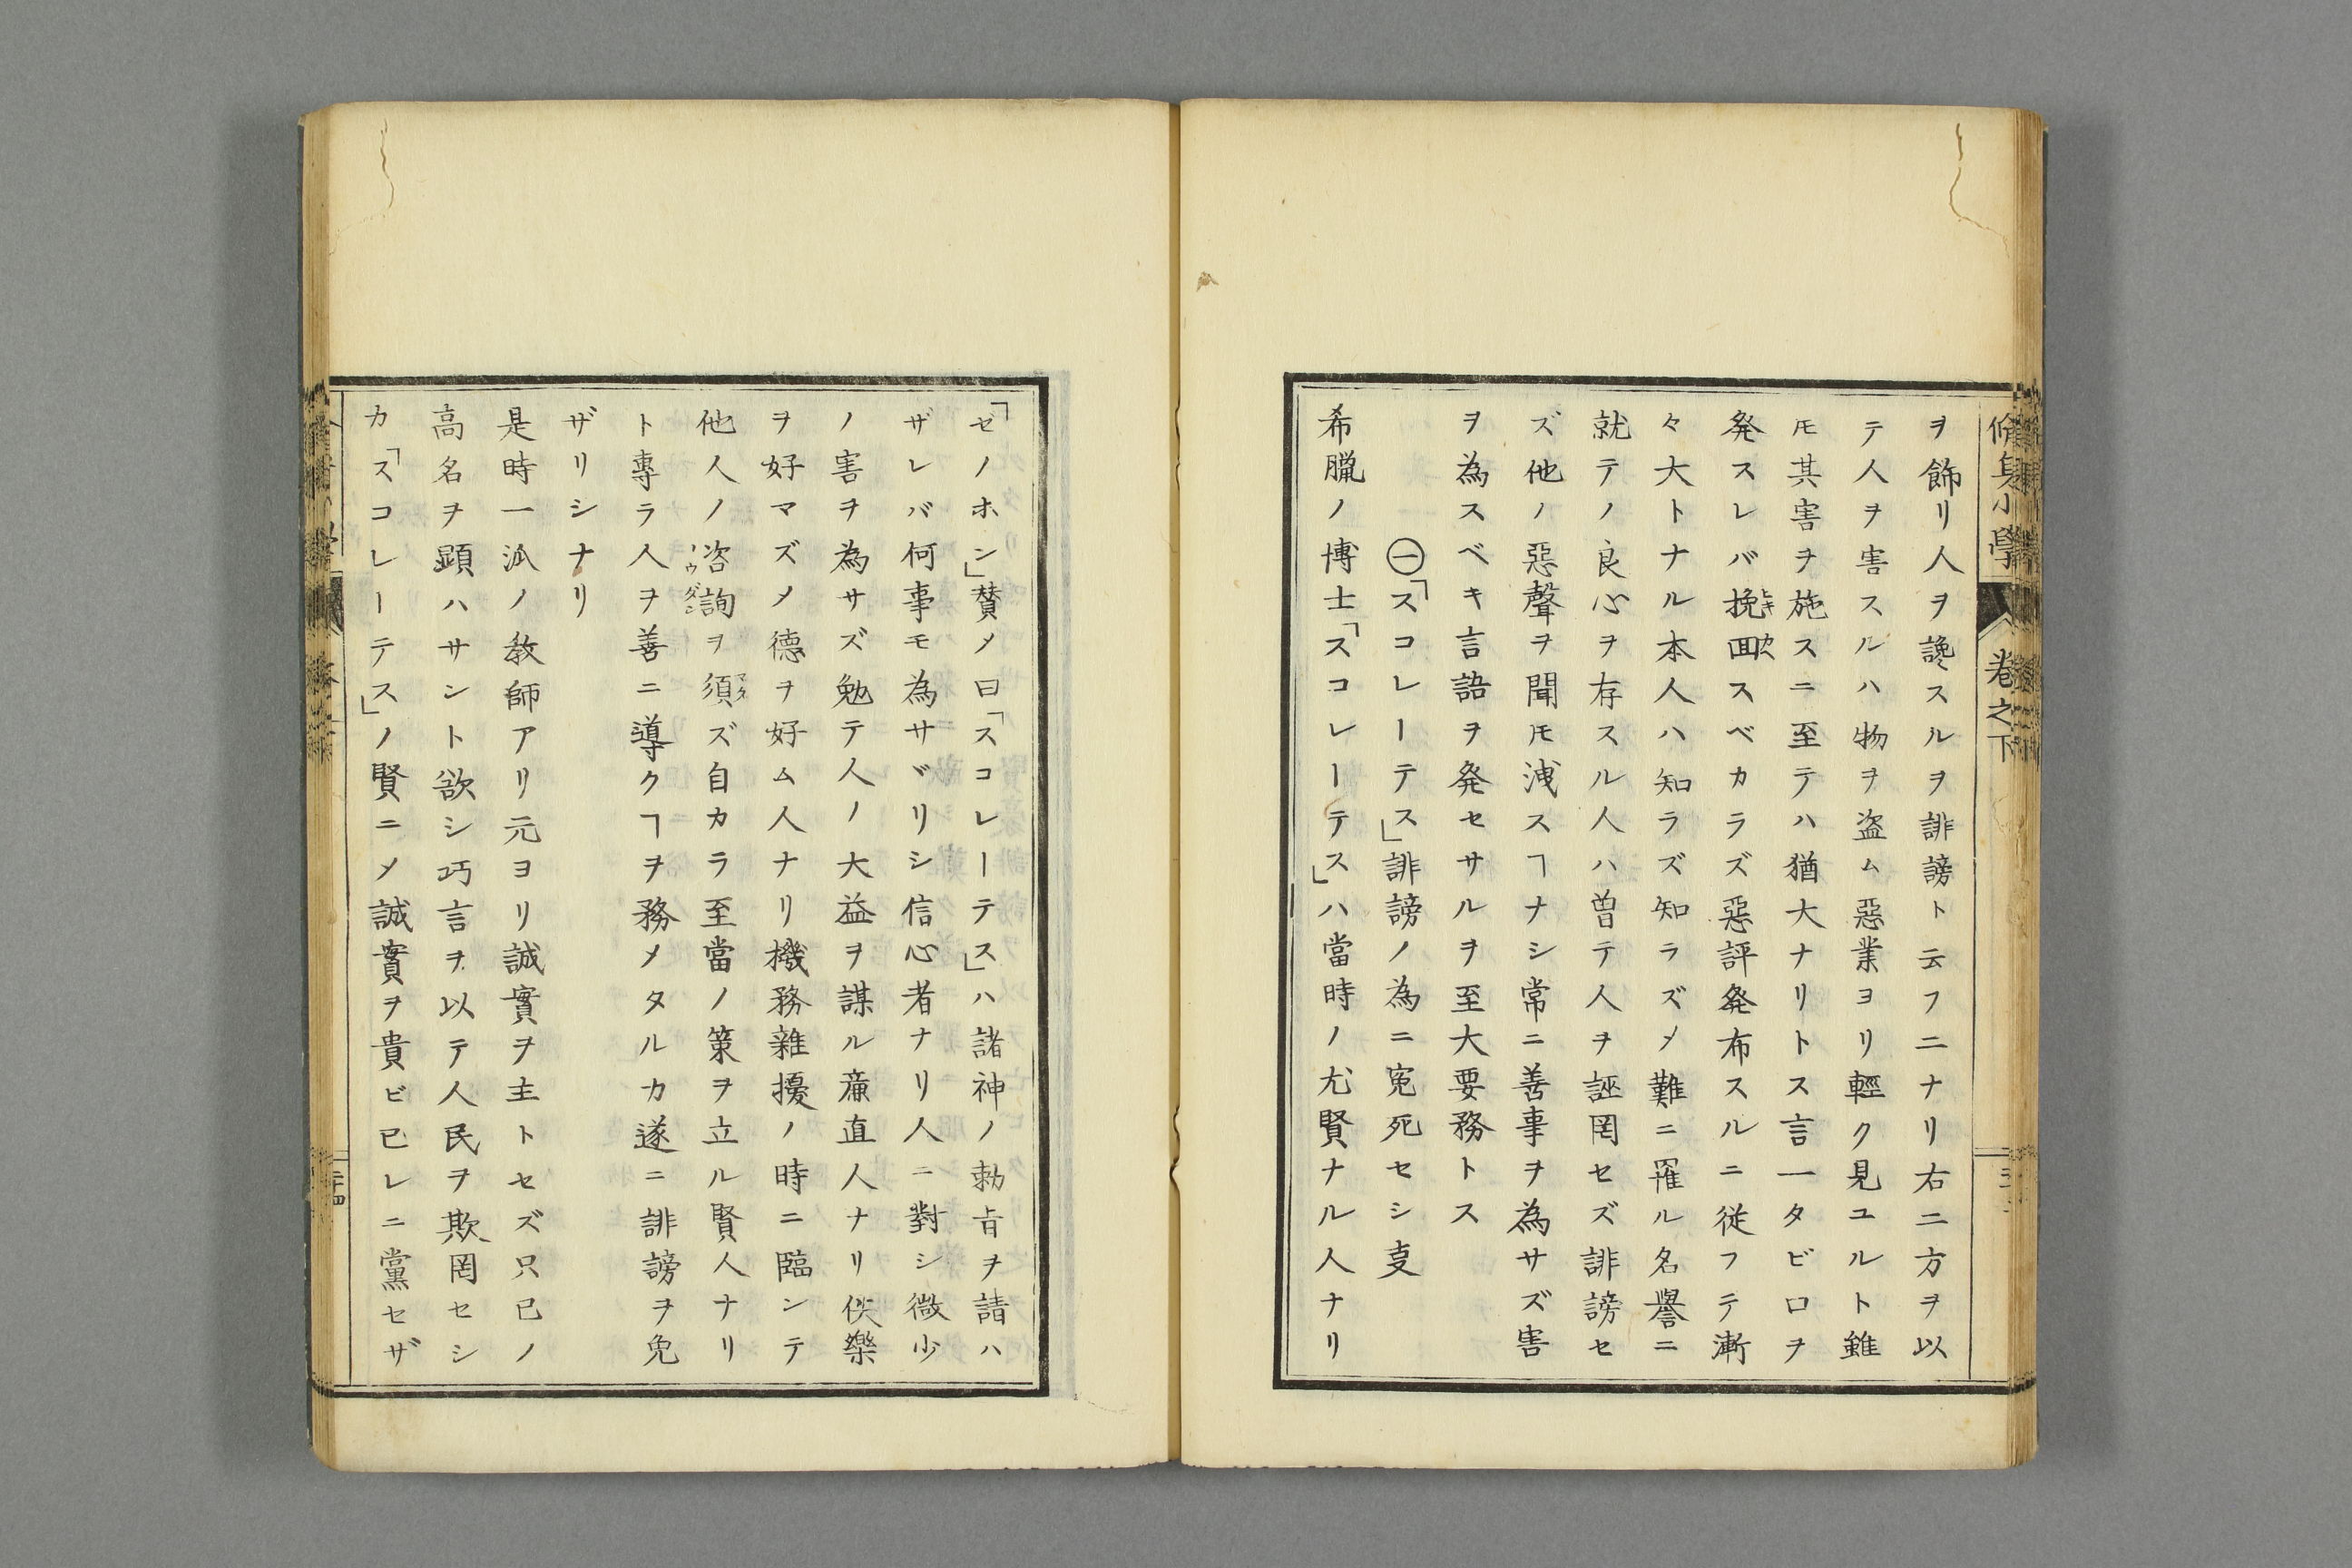 脩身小學 卷之下
ヲ飾リ人ヲ讒スルヲ誹謗ト云フニナリ右二方ヲ以
テ人ヲ害スルハ物ヲ盗ム惡業ヨリ輕ク見ユルト雖
モ其害ヲ施スニ至テハ猶大ナリトス言一タビ口ヲ
発スレバ挽回スベカラズ惡評発布スルニ従フテ漸
々大トナル本人ハ知ラズ知ラズメ難ニ罹ル名譽ニ
就テノ良心ヲ存スル人ハ曽テ人ヲ誣罔セズ誹謗セ
ズ他ノ惡聲ヲ聞モ洩スヿナシ常ニ善事ヲ為サズ害
ヲ為スベキ言語ヲ発セサルヲ至大要務トス
㊀「スコレーテス」誹謗ノ為ニ寃死セシ㕝
希臘ノ博士「スコレーテス」ハ當時ノ尤賢ナル人ナリ
「ゼノホン」賛メ曰「スコレーテス」ハ諸神ノ勅旨ヲ請ハ
ザレバ何事モ為サヾリシ信心者ナリ人ニ對シ微少
ノ害ヲ為サズ勉テ人ノ大益ヲ謀ル廉直人ナリ佚樂
ヲ好マズメ德ヲ好ム人ナリ機務雜擾ノ時ニ臨ンテ
他人ノ咨詢ヲ須ズ自カラ至當ノ策ヲ立ル賢人ナリ
ト專ラ人ヲ善ニ導クヿヲ務メタルカ遂ニ誹謗ヲ免
ザリシナリ
是時一派ノ教師アリ元ヨリ誠實ヲ主トセズ只己ノ
高名ヲ顕ハサント欲シ巧言ヲ以テ人民ヲ欺罔セシ
カ「スコレーテス」ノ賢ニメ誠實ヲ貴ビ已レニ黨セザ
二十四